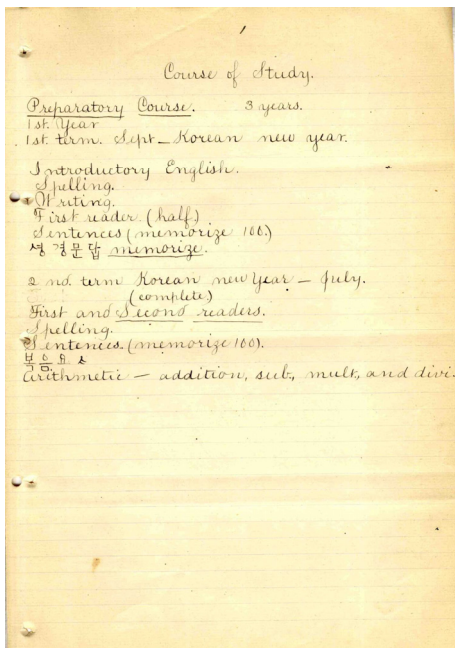 1
Course of Study.
Preparatory Course. 3 years.
1st. Year
1st. term. Sept – Korean new year.
Introductory English.
Spelling.
Writing.
First reader. (half.)
Sentences (memorize 100.)
셩경문답 memorize.
2 nd. term Korean new Year – July.
(complete)
First and Second readers.
Spelling.
Sentences. (memorize 100).
복음요사
Arithmetic – addition, sub, mult, and divi.